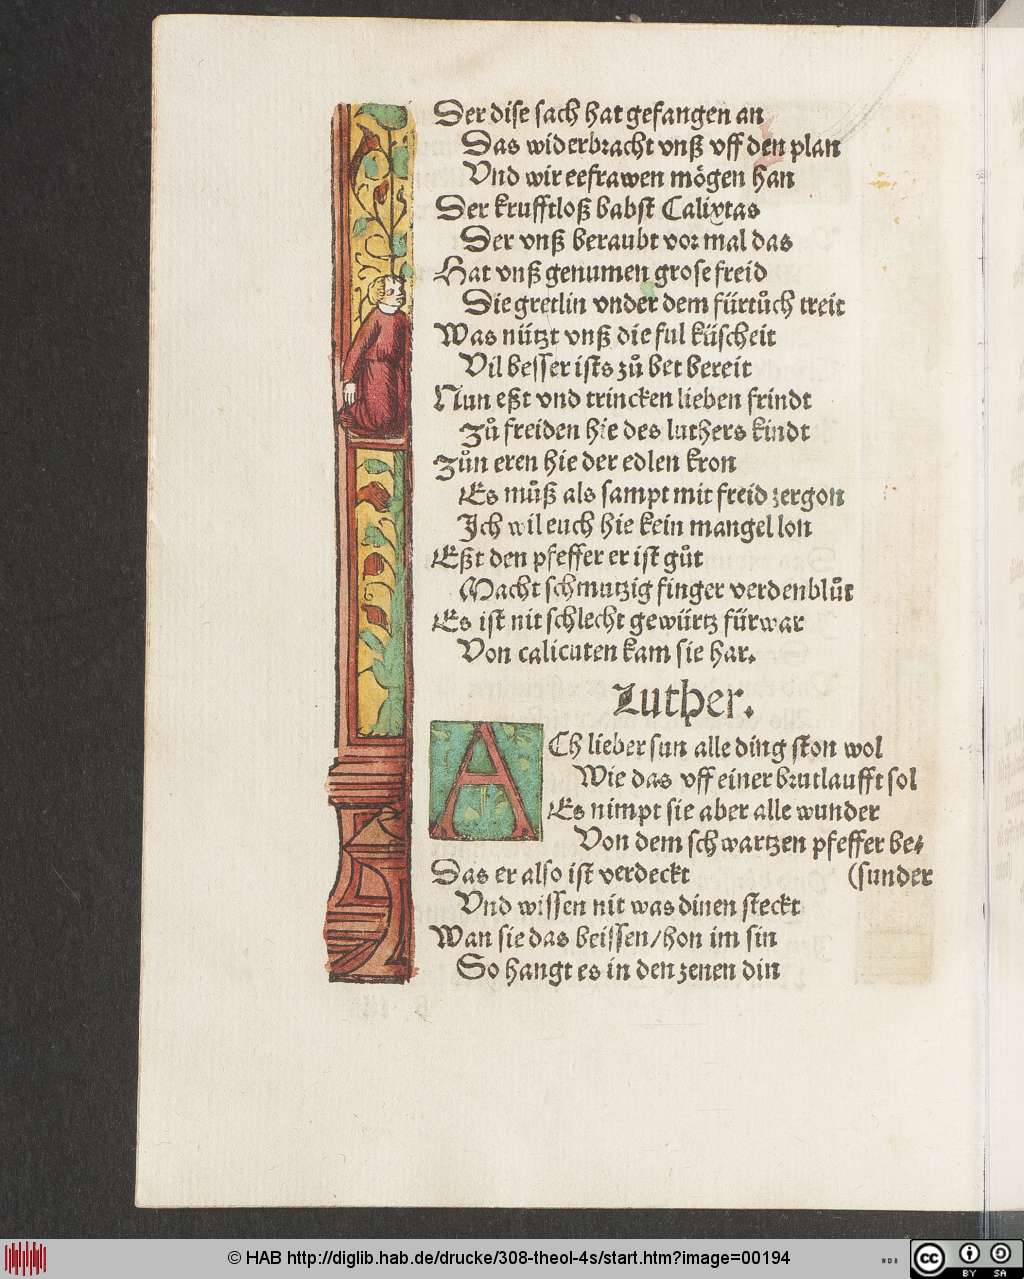 Der dise sach hat gefangen an
Das widerbracht vnß vff den plan
Vnd wir eefrawen mögen han
Der krufftloß babst Calixtas
Der vnß beraubt vor mal das
Hat vnß genumen grose freid
Die gretlin vnder dem fürtůch treit
Was nützt vnß die ful küscheit
Vil besser ists zů bet bereit
Nun eßt vnd trincken lieben frindt
Zů freiden hie des luthers kindt
Zůn eren hie der edlen kron
Es můß als sampt mit freid zergon
Ich wil euch hie kein mangel lon
Eßt den pfeffer er ist gůt
Macht schmutzig finger verdenblůt
Es ist nit schlecht gewürtz fürwar
Von calicuten kam sie har.
Luther.
ACh lieber sun alle ding ston wol
Wie das vff einer brutlaufft sol
Es nimpt sie aber alle wunder
Von dem schwartzen pfeffer be⸗
Das er also ist verdeckt (sunder
Vnd wissen nit was dinen steckt
Wan sie das beissen/hon im sin
So hangt es in den zenen din
© HAB http://diglib.hab.de/drucke/308-theol-4s/start.htm?image=00194
WDB
cc BY SA